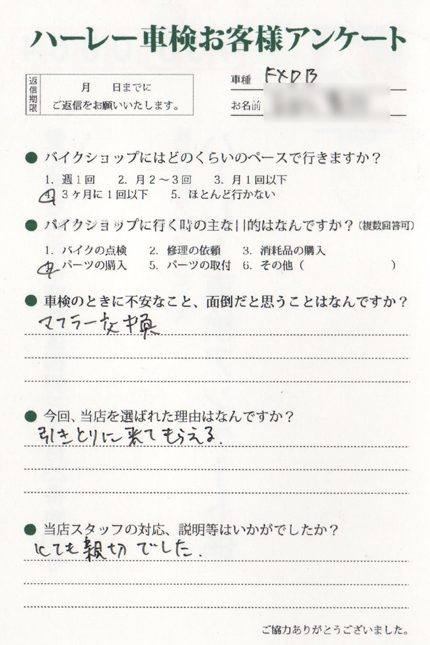 ハーレー車検お客様アンケート
返信期限
月　　日までに
ご返信をお願いいたします。
車種 FXDB
お名前
● バイクショップにはどのくらいのペースで行きますか？
1. 週1回　2. 月2～3回　3. 月1回以下
4. 3ヶ月に1回以下　5. ほとんど行かない
● バイクショップに行く時の主な目的はなんですか？(複数回答可)
1. バイクの点検　2. 修理の依頼　3. 消耗品の購入
4. パーツの購入　5. パーツの取付　6. その他（　　　　）
● 車検のときに不安なこと、面倒だと思うことはなんですか？
マフラー交換
● 今回、当店を選ばれた理由はなんですか？
引きとりに来てもらえる.
● 当店スタッフの対応、説明等はいかがでしたか？
とても親切でした.
ご協力ありがとうございました。